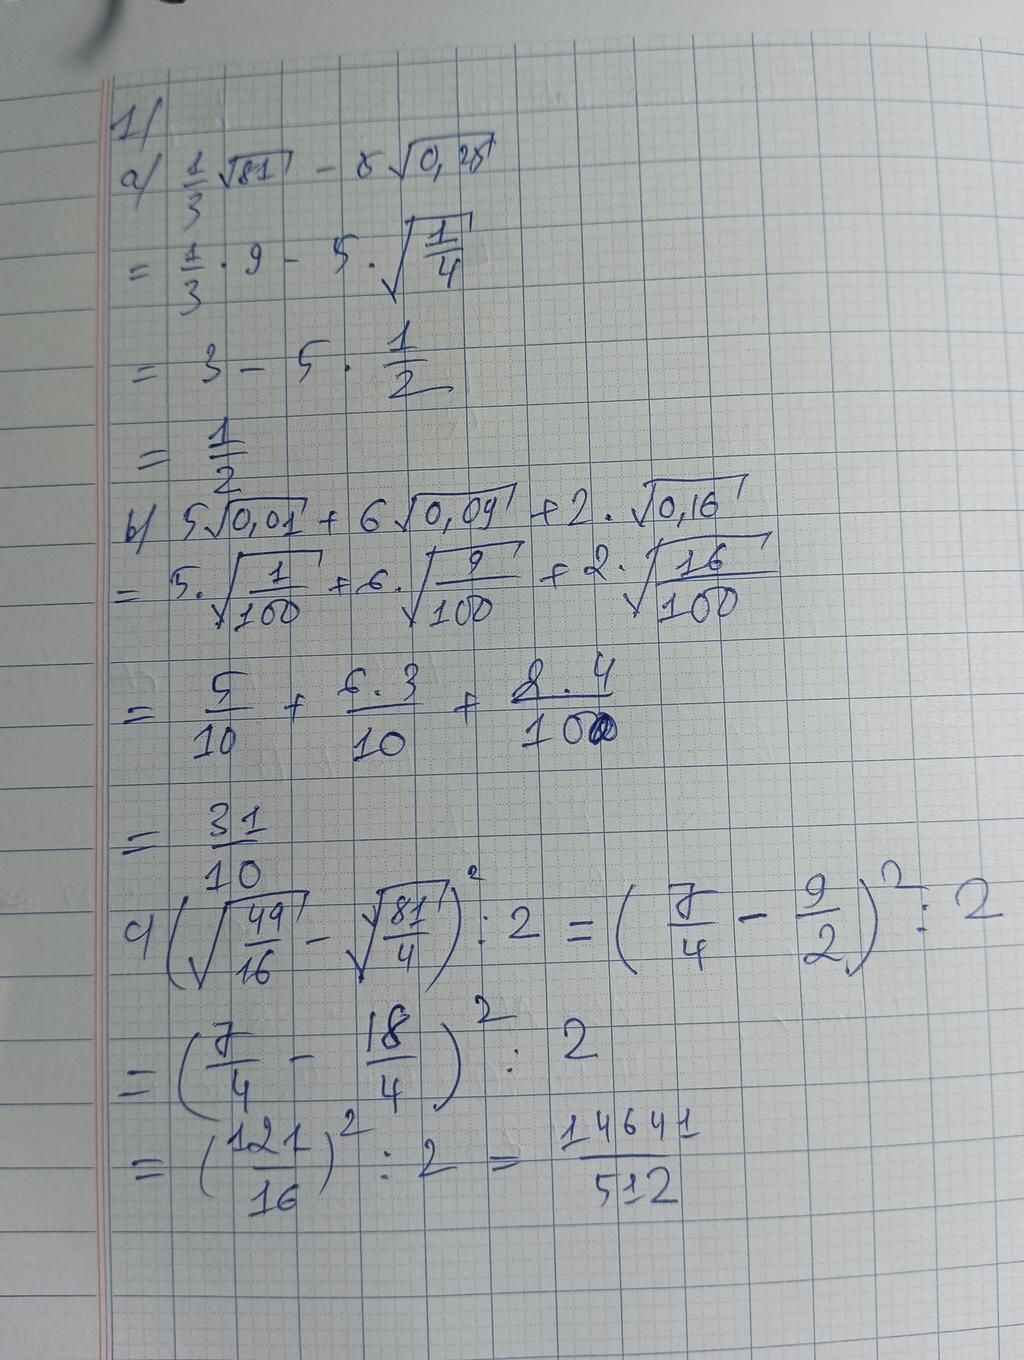 1/
a/ 1/3 √81 - 5 √0,25
= 1/3 . 9 - 5 . √(1/4)
= 3 - 5 . 1/2
= 1/2
b/ 5√0,01 + 6 √0,09 + 2 . √0,16
= 5.√(1/100) + 6.√(9/100) + 2.√(16/100)
= 5/10 + (6.3)/10 + (2.4)/10
= 31/10
c/ (√(49/16) - √(81/4))² : 2 = (7/4 - 9/2)² : 2
= (7/4 - 18/4)² : 2
= (121/16)² : 2 = 14641/512